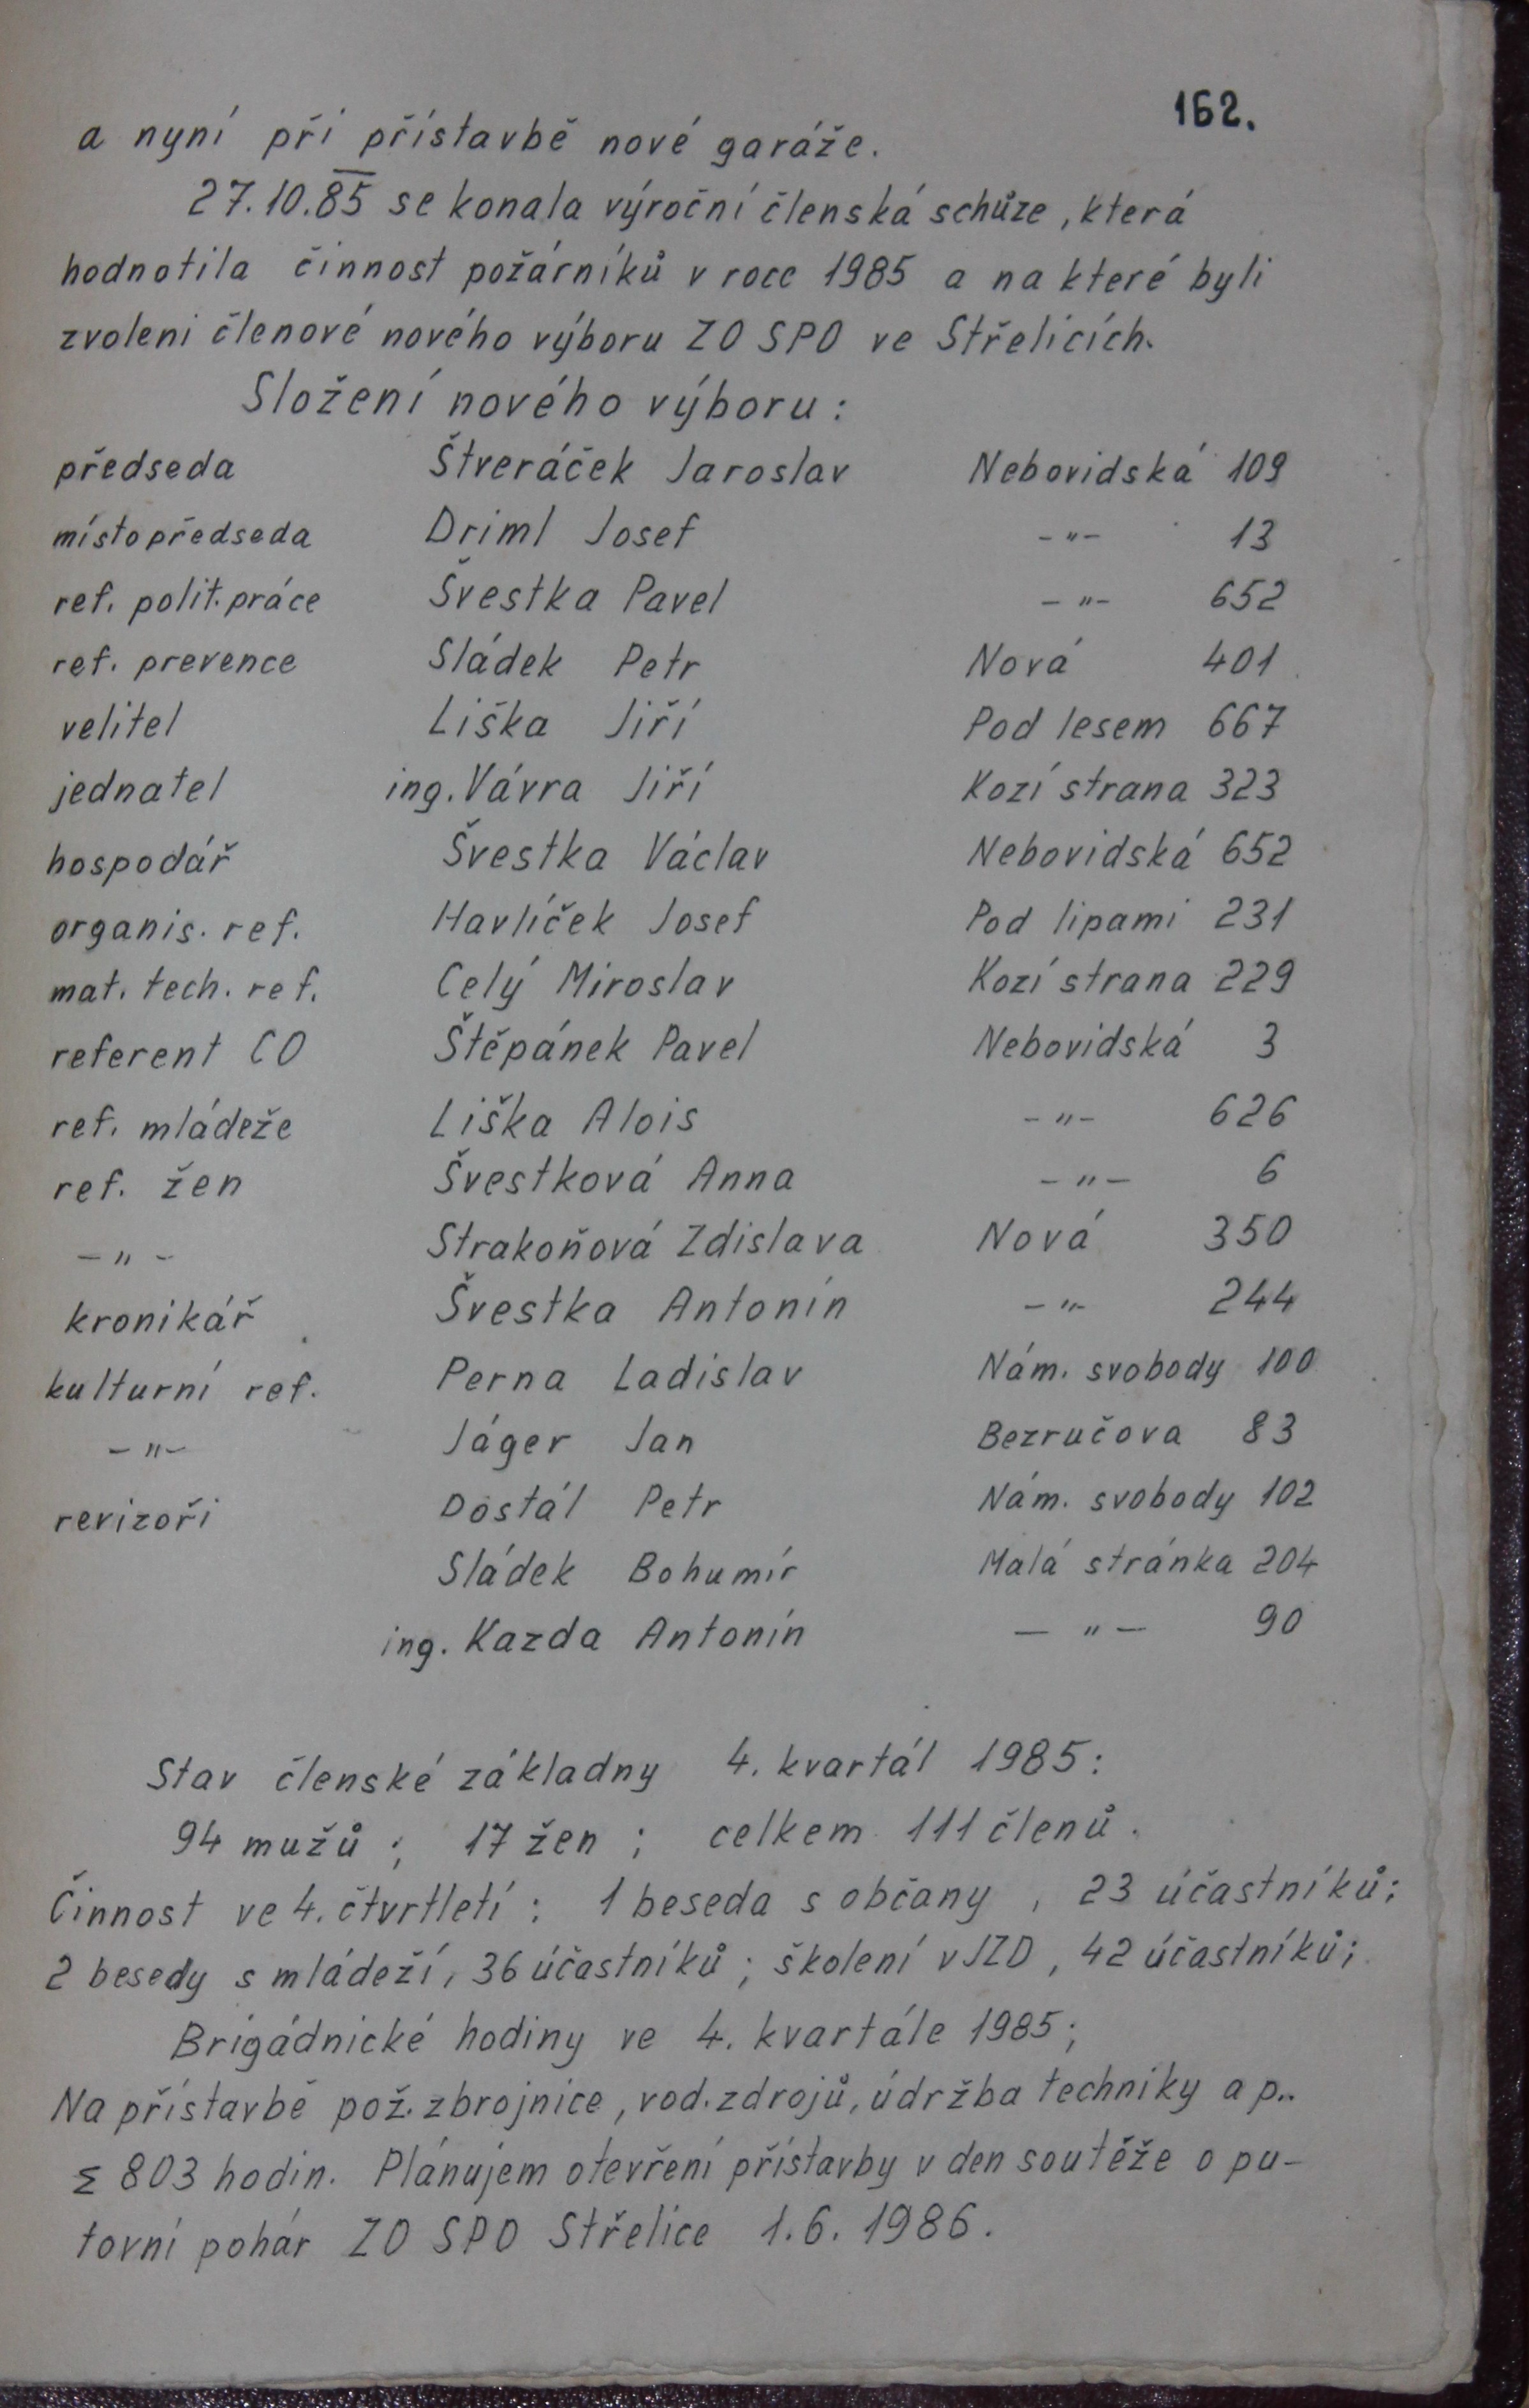 162.
a nyní při přístavbě nové garáže.
27.10.85 se konala výroční členská schůze, která
hodnotila činnost požárníků v roce 1985 a na které byli
zvoleni členové nového výboru ZO SPO ve Střelicích.
Složení nového výboru:
předseda Štveráček Jaroslav Nebovidská 109
místopředseda Driml Josef -"- 13
ref. polit. práce Švestka Pavel -"- 652
ref. prevence Sládek Petr Nová 401
velitel Liška Jiří Pod lesem 667
jednatel ing. Vávra Jiří Kozí strana 323
hospodář Švestka Václav Nebovidská 652
organis. ref. Havlíček Josef Pod lipami 231
mat. tech. ref. Celý Miroslav Kozí strana 229
referent CO Štěpánek Pavel Nebovidská 3
ref. mládeže Liška Alois -"- 626
ref. žen Švestková Anna -"- 6
-"- Strakoňová Zdislava Nová 350
kronikář Švestka Antonín -"- 244
kulturní ref. Perna Ladislav Nám. svobody 100
-"- Jáger Jan Bezručova 83
revizoři Dostál Petr Nám. svobody 102
Sládek Bohumír Malá stránka 204
ing. Kazda Antonín -"- 90
Stav členské základny 4. kvartál 1985:
94 mužů; 17 žen; celkem 111 členů.
Činnost ve 4. čtvrtletí: 1 beseda s občany, 23 účastníků;
2 besedy s mládeží, 36 účastníků; školení v JZD, 42 účastníků;
Brigádnické hodiny ve 4. kvartále 1985;
Na přístavbě pož. zbrojnice, vod. zdrojů, údržba techniky a p..
Σ 803 hodin. Plánujem otevření přístavby v den soutěže o pu-
tovní pohár ZO SPO Střelice 1.6.1986.